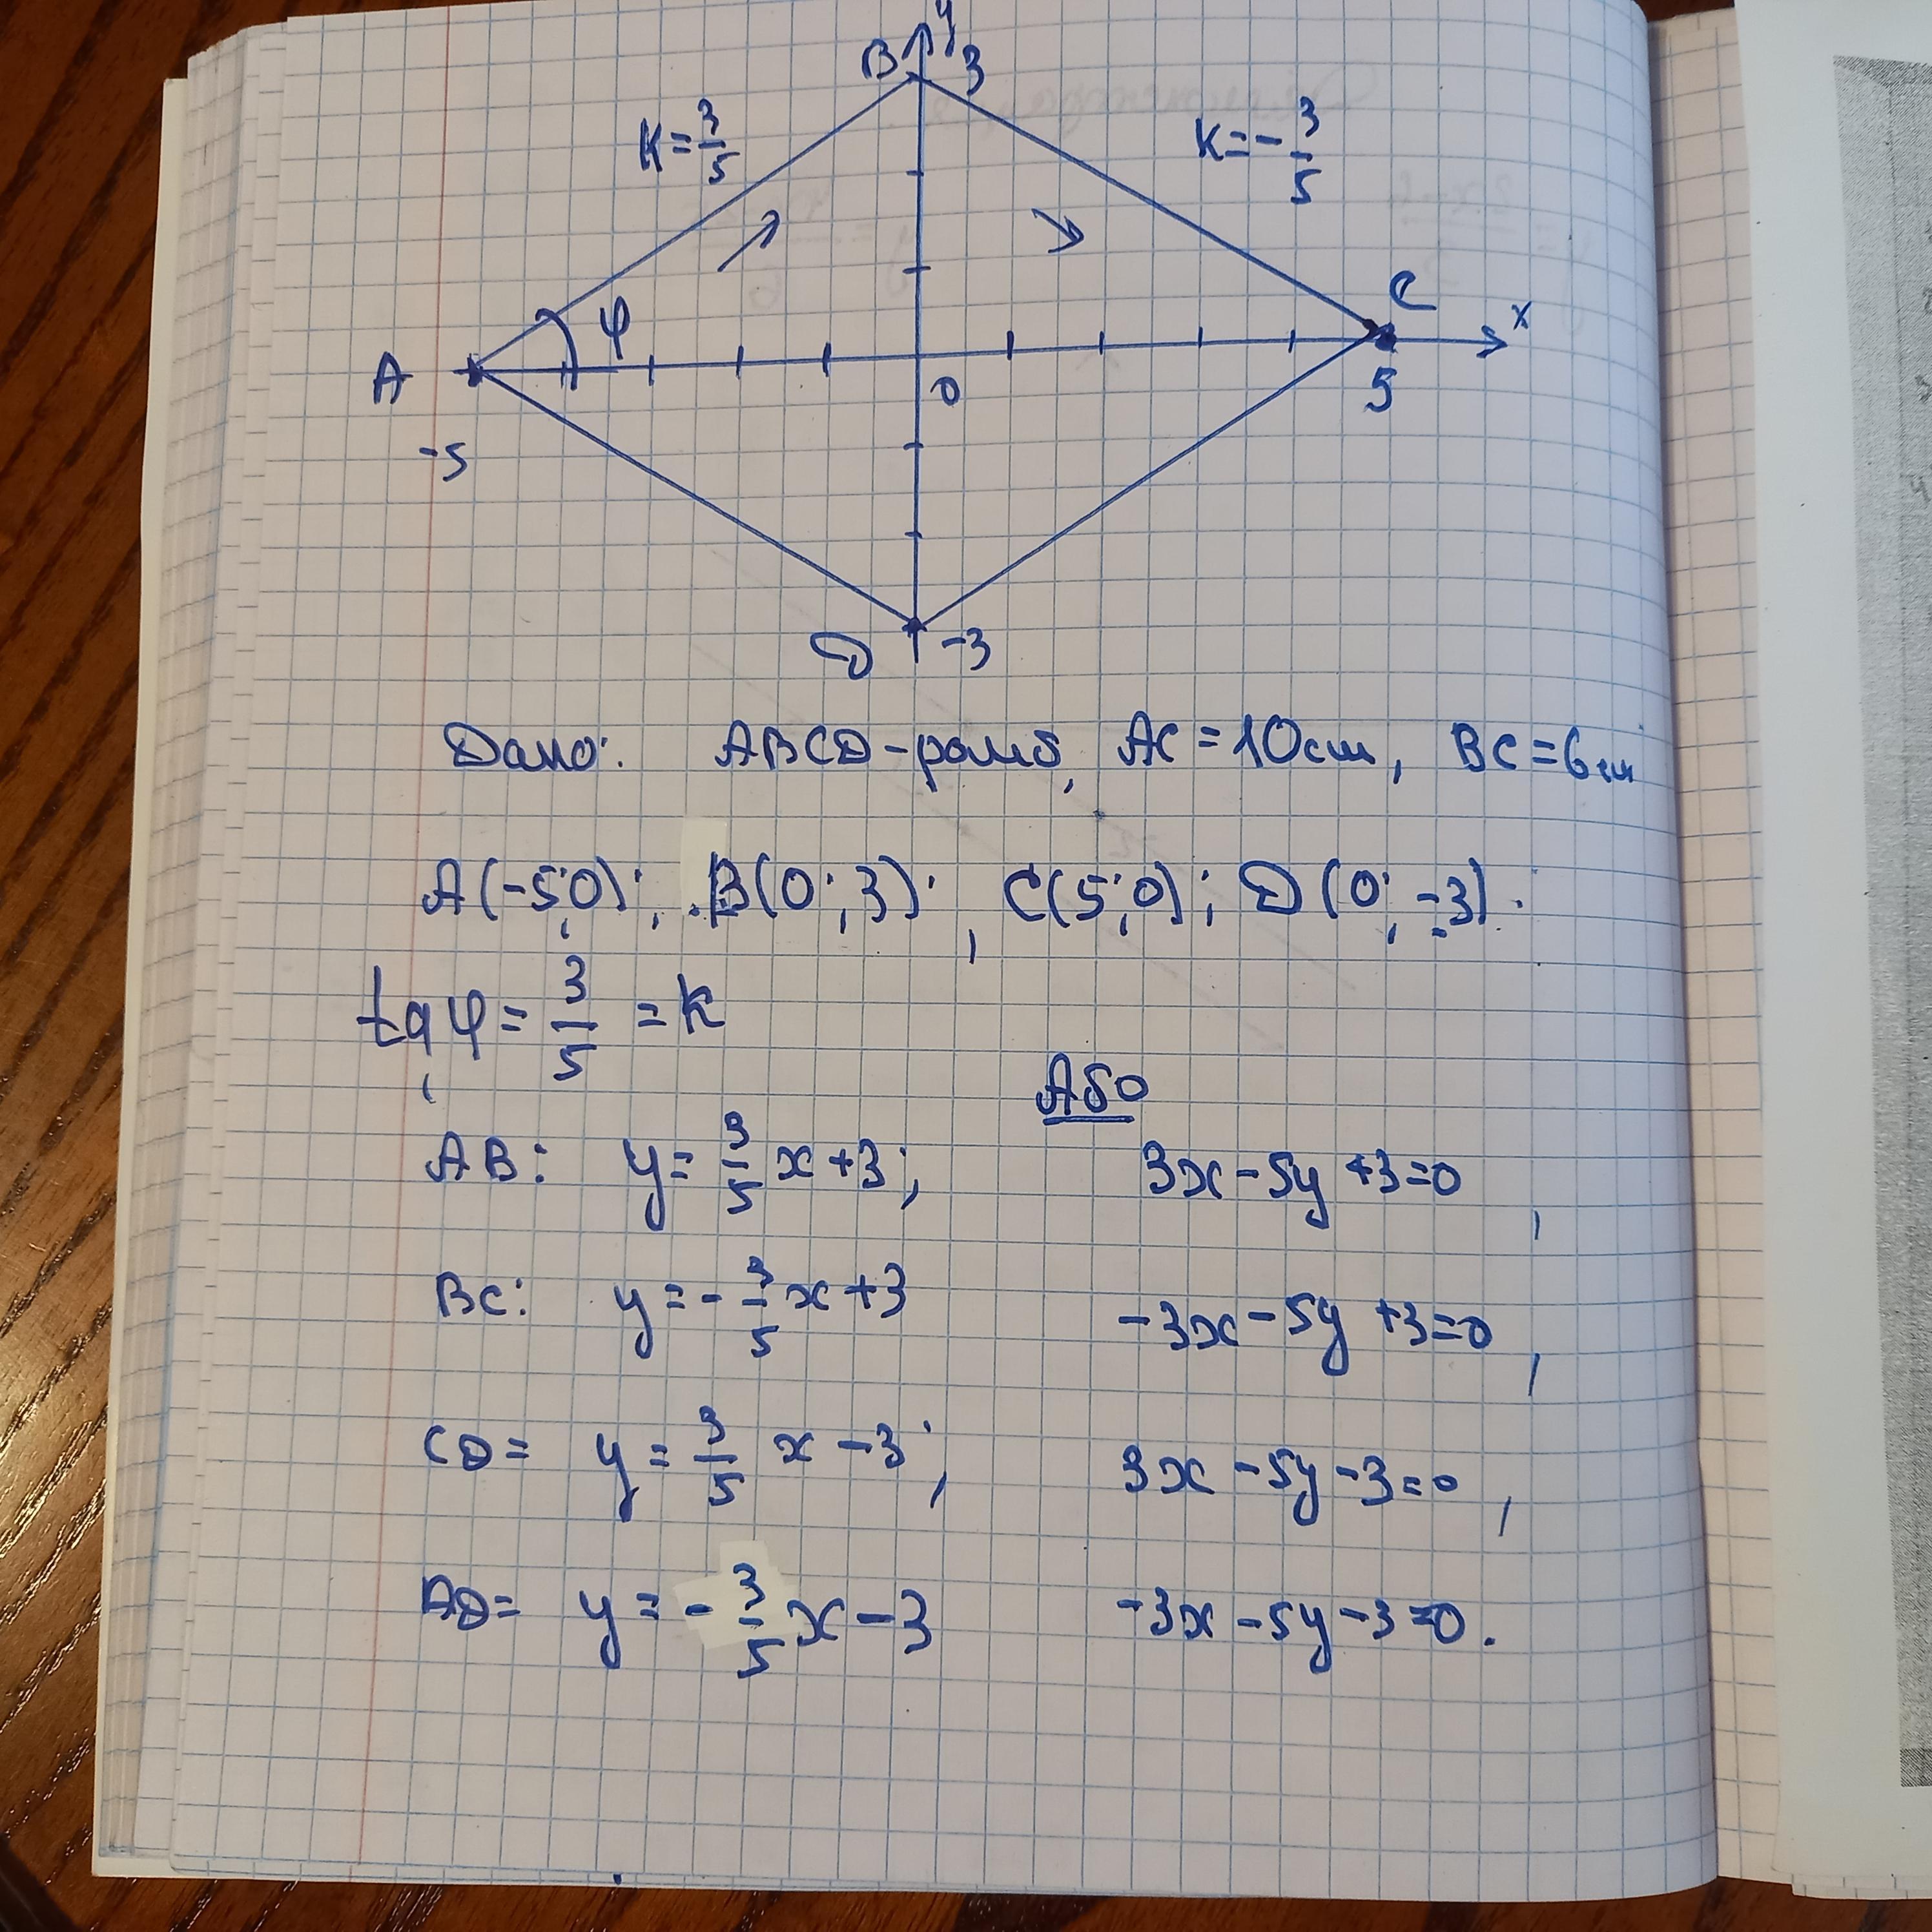 y
B 3
K=3/5
K=-3/5
φ
C
x
A
0
5
-5
D -3
Дано: ABCD-ромб, AC=10см, BC=6см
A(-5;0); B(0;3); C(5;0); D(0;-3).
tgφ=3/5=k
Або
AB: y=3/5x+3; 3x-5y+3=0,
BC: y=-3/5x+3 -3x-5y+3=0,
CD= y=3/5x-3; 3x-5y-3=0,
AD= y=-3/5x-3 -3x-5y-3=0.